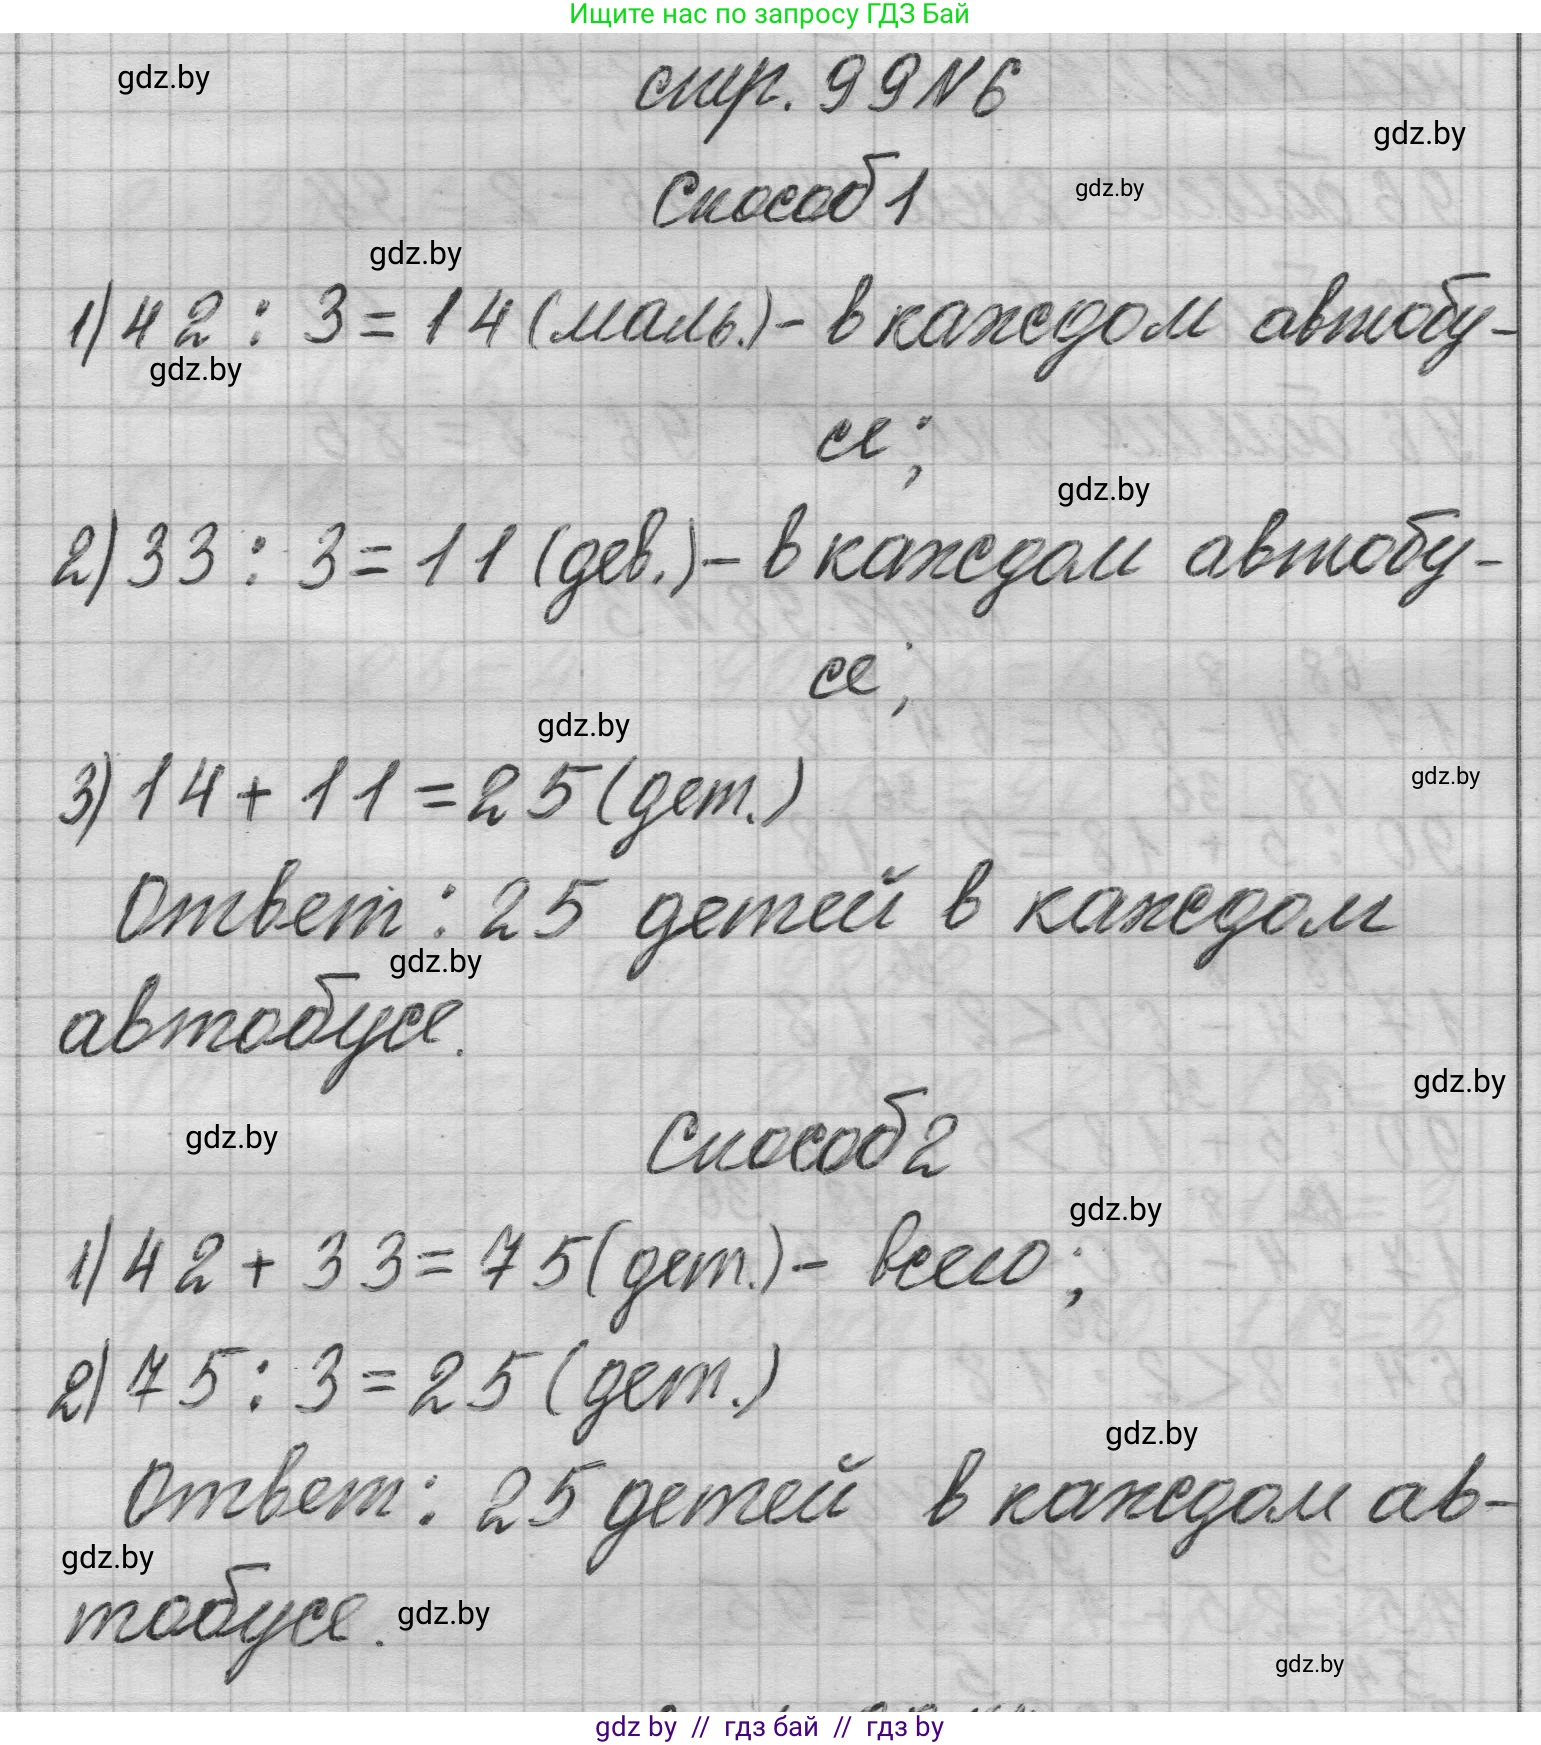 Ищите нас по запросу ГДЗ Бай
gdz.by
стр. 99 N 6
gdz.by
Способ 1
gdz.by
gdz.by
1) 42 : 3 = 14 (маль.) - в каждом автобу-
gdz.by
се;
gdz.by
2) 33 : 3 = 11 (дев.) - в каждом автобу-
се;
gdz.by
3) 14 + 11 = 25 (дет.)
gdz.by
Ответ: 25 детей в каждом
gdz.by
автобусе.
gdz.by
gdz.by
Способ 2
gdz.by
1) 42 + 33 = 75 (дет.) - всего;
2) 75 : 3 = 25 (дет.)
gdz.by
Ответ: 25 детей в каждом ав-
gdz.by
тобусе.
gdz.by
gdz.by
gdz by // гдз бай // гдз by